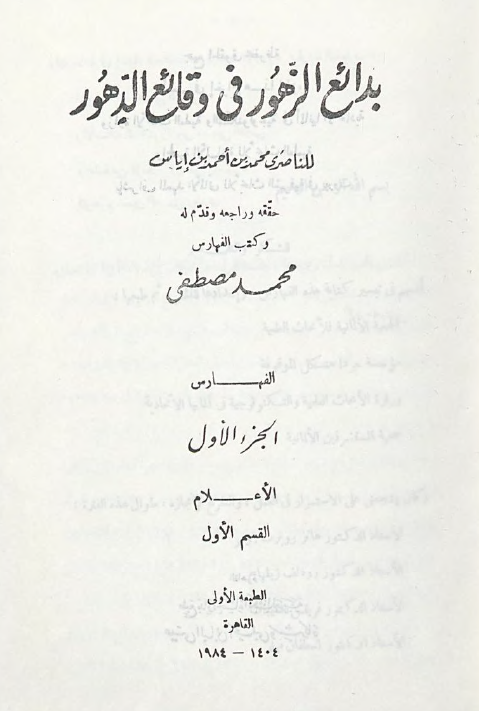 بدائع الزهور في وقائع الدهور
للناصرى محمد بن أحمد بن إياس
حققه وراجعه وقدم له
وكتب الفهارس
محمد مصطفى
الفهـــارس
الجزء الأول
الأعـــلام
القسم الأول
الطبعة الأولى
القاهرة
١٤٠٤ — ١٩٨٤